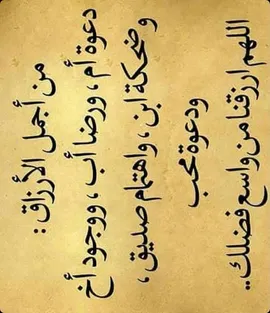 من أجمل الأرزاق :
دعوة أم ، ورضا أب ، ووجود أخ
وضحكة ابن ، واهتمام صديق ،
ودعوة محب
اللهم ارزقنا من واسع فضلك ..